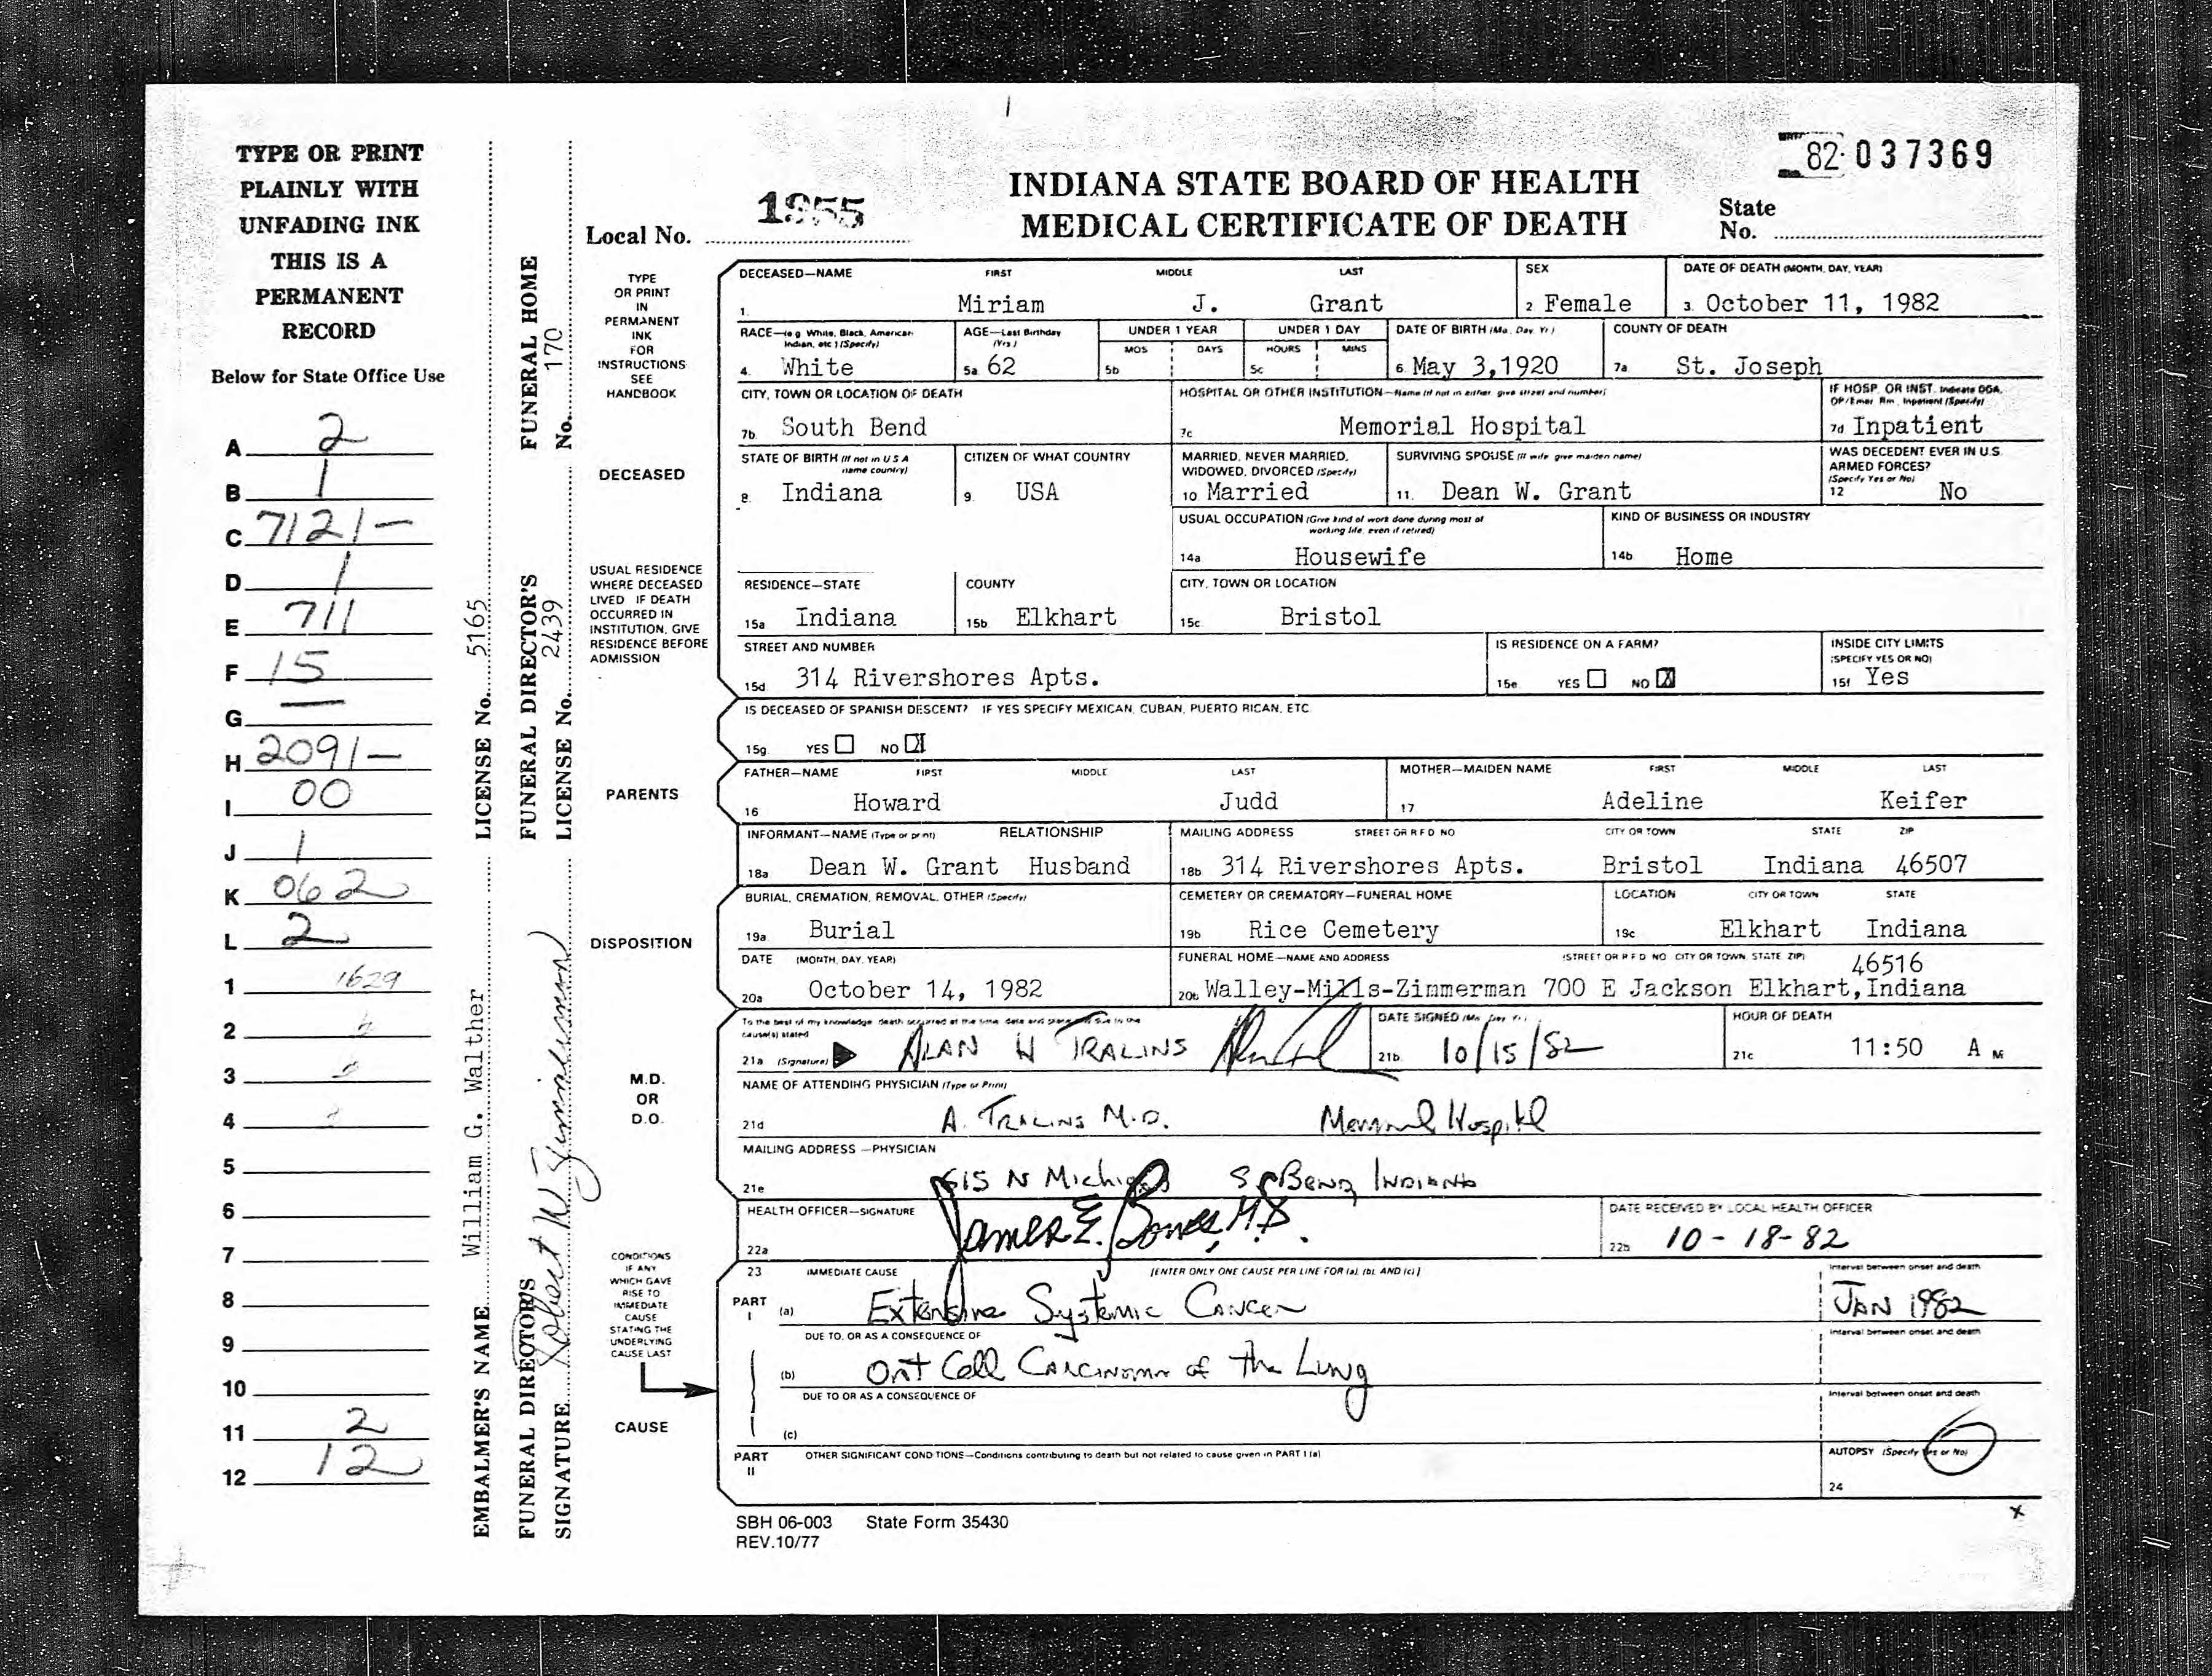 TYPE OR PRINT
PLAINLY WITH
UNFADING INK
THIS IS A
PERMANENT
RECORD
Below for State Office Use
A 2
B 1
C 7121-
D 1
E 711
F 15
G —
H 2091-
I 00
J 1
K 062
L 2
1 1629
2
3
4
5
6
7
8
9
10
11 2
12 12
EMBALMER'S NAME William G. Walther LICENSE No. 5165
FUNERAL DIRECTOR'S SIGNATURE Robert W Zimmerman
FUNERAL DIRECTOR'S LICENSE No. 2439
FUNERAL HOME No. 170
82- 037369
INDIANA STATE BOARD OF HEALTH
MEDICAL CERTIFICATE OF DEATH
Local No. 1955
State No.
TYPE
OR PRINT
IN
PERMANENT
INK
FOR
INSTRUCTIONS
SEE
HANDBOOK
DECEASED—NAME FIRST MIDDLE LAST SEX DATE OF DEATH (MONTH, DAY, YEAR)
1. Miriam J. Grant 2 Female 3. October 11, 1982
RACE—(e g White, Black, American Indian, etc ) (Specify) AGE—Last Birthday (Yrs ) UNDER 1 YEAR UNDER 1 DAY DATE OF BIRTH (Mo , Day, Yr ) COUNTY OF DEATH
MOS DAYS HOURS MINS
4. White 5a 62 5b 5c 6 May 3,1920 7a St. Joseph
CITY, TOWN OR LOCATION OF DEATH HOSPITAL OR OTHER INSTITUTION—Name (If not in either, give street and number) IF HOSP. OR INST. Indicate DOA, OP/Emer Rm , Inpatient (Specify)
7b. South Bend 7c Memorial Hospital 7d Inpatient
DECEASED
STATE OF BIRTH (If not in U S A name country) CITIZEN OF WHAT COUNTRY MARRIED, NEVER MARRIED, WIDOWED, DIVORCED (Specify) SURVIVING SPOUSE (If wife give maiden name) WAS DECEDENT EVER IN U.S. ARMED FORCES? (Specify Yes or No)
8. Indiana 9. USA 10 Married 11. Dean W. Grant 12 No
USUAL OCCUPATION (Give kind of work done during most of working life, even if retired) KIND OF BUSINESS OR INDUSTRY
14a Housewife 14b Home
USUAL RESIDENCE
WHERE DECEASED
LIVED IF DEATH
OCCURRED IN
INSTITUTION, GIVE
RESIDENCE BEFORE
ADMISSION
RESIDENCE—STATE COUNTY CITY, TOWN OR LOCATION
15a Indiana 15b Elkhart 15c Bristol
STREET AND NUMBER IS RESIDENCE ON A FARM? INSIDE CITY LIMITS (SPECIFY YES OR NO)
15d 314 Rivershores Apts. 15e YES NO X 15f Yes
IS DECEASED OF SPANISH DESCENT? IF YES SPECIFY MEXICAN, CUBAN, PUERTO RICAN, ETC
15g. YES NO X
PARENTS
FATHER—NAME FIRST MIDDLE LAST MOTHER—MAIDEN NAME FIRST MIDDLE LAST
16 Howard Judd 17 Adeline Keifer
INFORMANT—NAME (Type or print) RELATIONSHIP MAILING ADDRESS STREET OR R F D NO CITY OR TOWN STATE ZIP
18a Dean W. Grant Husband 18b 314 Rivershores Apts. Bristol Indiana 46507
DISPOSITION
BURIAL, CREMATION, REMOVAL, OTHER (Specify) CEMETERY OR CREMATORY—FUNERAL HOME LOCATION CITY OR TOWN STATE
19a Burial 19b Rice Cemetery 19c Elkhart Indiana
DATE (MONTH, DAY, YEAR) FUNERAL HOME—NAME AND ADDRESS (STREET OR R F D NO CITY OR TOWN, STATE ZIP)
46516
20a October 14, 1982 20b Walley-Mills-Zimmerman 700 E Jackson Elkhart, Indiana
M.D.
OR
D.O.
To the best of my knowledge death occurred at the time, date and place and due to the cause(s) stated DATE SIGNED (Mo , Day, Yr ) HOUR OF DEATH
21a (Signature) ALAN H TRALINS 21b. 10/15/82 21c 11:50 A M
NAME OF ATTENDING PHYSICIAN (Type or Print)
21d A. TRALINS M.D. Memorial Hospital
MAILING ADDRESS —PHYSICIAN
21e 615 N Michigan S. Bend, INDIANA
HEALTH OFFICER—SIGNATURE DATE RECEIVED BY LOCAL HEALTH OFFICER
22a James E. M.D. 22b 10-18-82
CONDITIONS
IF ANY
WHICH GAVE
RISE TO
IMMEDIATE
CAUSE
STATING THE
UNDERLYING
CAUSE LAST
CAUSE
23 IMMEDIATE CAUSE [ENTER ONLY ONE CAUSE PER LINE FOR (a), (b), AND (c)] Interval between onset and death
PART I (a) Extensive Systemic Cancer JAN 1982
DUE TO, OR AS A CONSEQUENCE OF Interval between onset and death
(b) Oat Cell Carcinoma of the Lung
DUE TO OR AS A CONSEQUENCE OF Interval between onset and death
(c)
PART II OTHER SIGNIFICANT CONDITIONS—Conditions contributing to death but not related to cause given in PART I (a) AUTOPSY (Specify Yes or No)
24
SBH 06-003 State Form 35430
REV.10/77